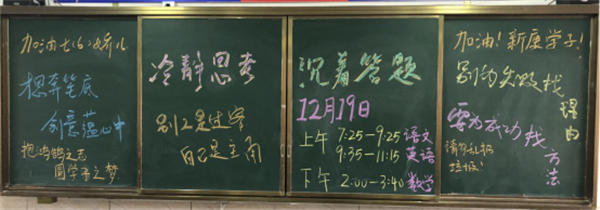 加油七(6)好儿
想奔笔底
创意蕴心中
抱鸿鹄之志
圆学子之梦
冷静思考
别人是过客
自己是主角
沉着答题
12月19日
上午 7:25-9:25 语文
9:35-11:15 英语
下午 2:00-3:40 数学
加油!新康学子!
别为失败找
理由
要为成功找
方法
请勿乱扔
垃圾!